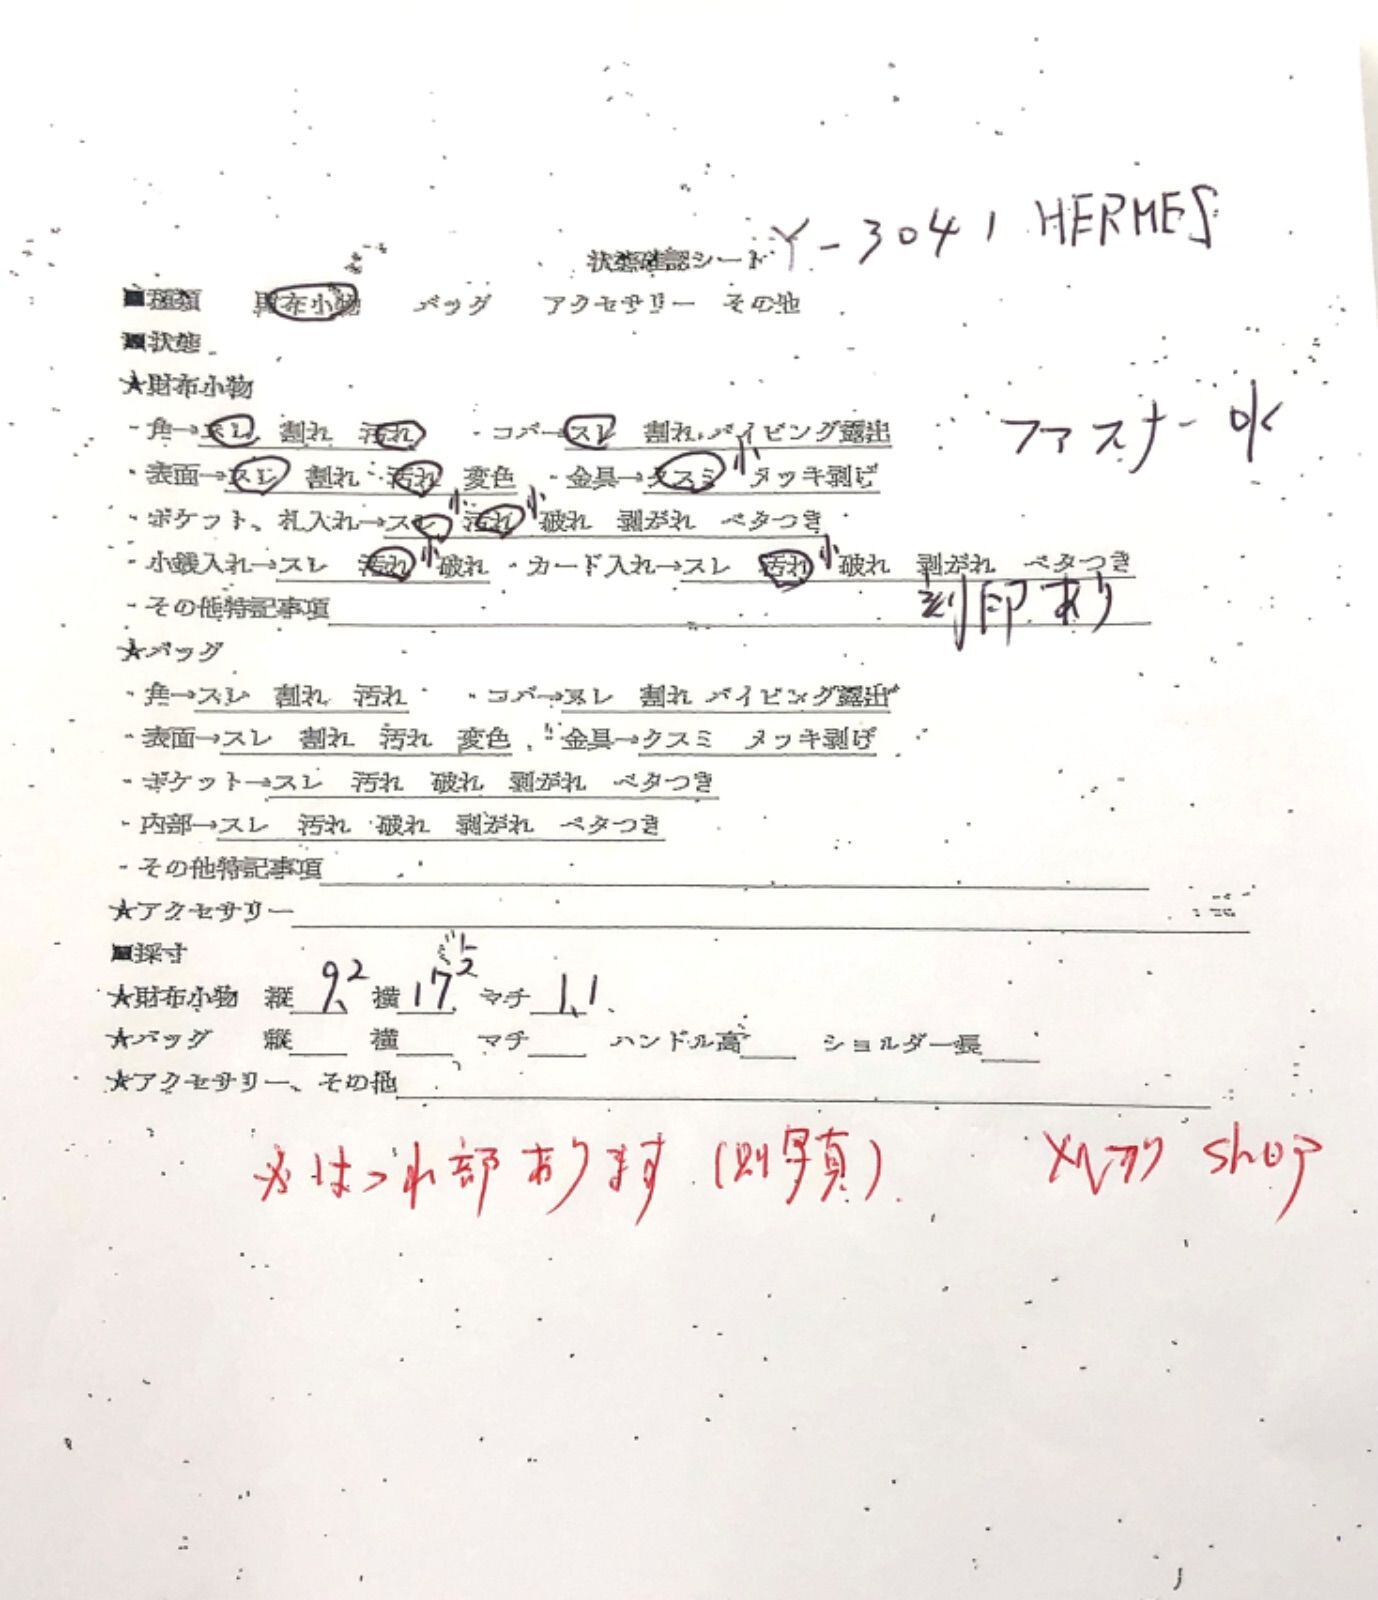 状態確認シート Y-3041 HERMES
■種類 財布小物 バッグ アクセサリー その他
■状態
★財布小物
・角→スレ 割れ 汚れ ・コバ→スレ 割れ パイピング露出
ファスナー
・表面→スレ 割れ 汚れ 変色 ・金具→クスミ 小 メッキ剥げ
・ポケット、札入れ→スレ 小 汚れ 小 破れ 剥がれ ベタつき
・小銭入れ→スレ 汚れ 小 破れ ・カード入れ→スレ 汚れ 小 破れ 剥がれ ベタつき
・その他特記事項 刻印あり
★バッグ
・角→スレ 割れ 汚れ ・コバ→スレ 割れ パイピング露出
・表面→スレ 割れ 汚れ 変色 ・金具→クスミ メッキ剥げ
・ポケット→スレ 汚れ 破れ 剥がれ ベタつき
・内部→スレ 汚れ 破れ 剥がれ ベタつき
・その他特記事項
★アクセサリー
■採寸
★財布小物 縦 9.2 横 17.5 マチ 1.1
★バッグ 縦 横 マチ ハンドル高 ショルダー長
★アクセサリー、その他
※ほつれ部あります(別写真) shop